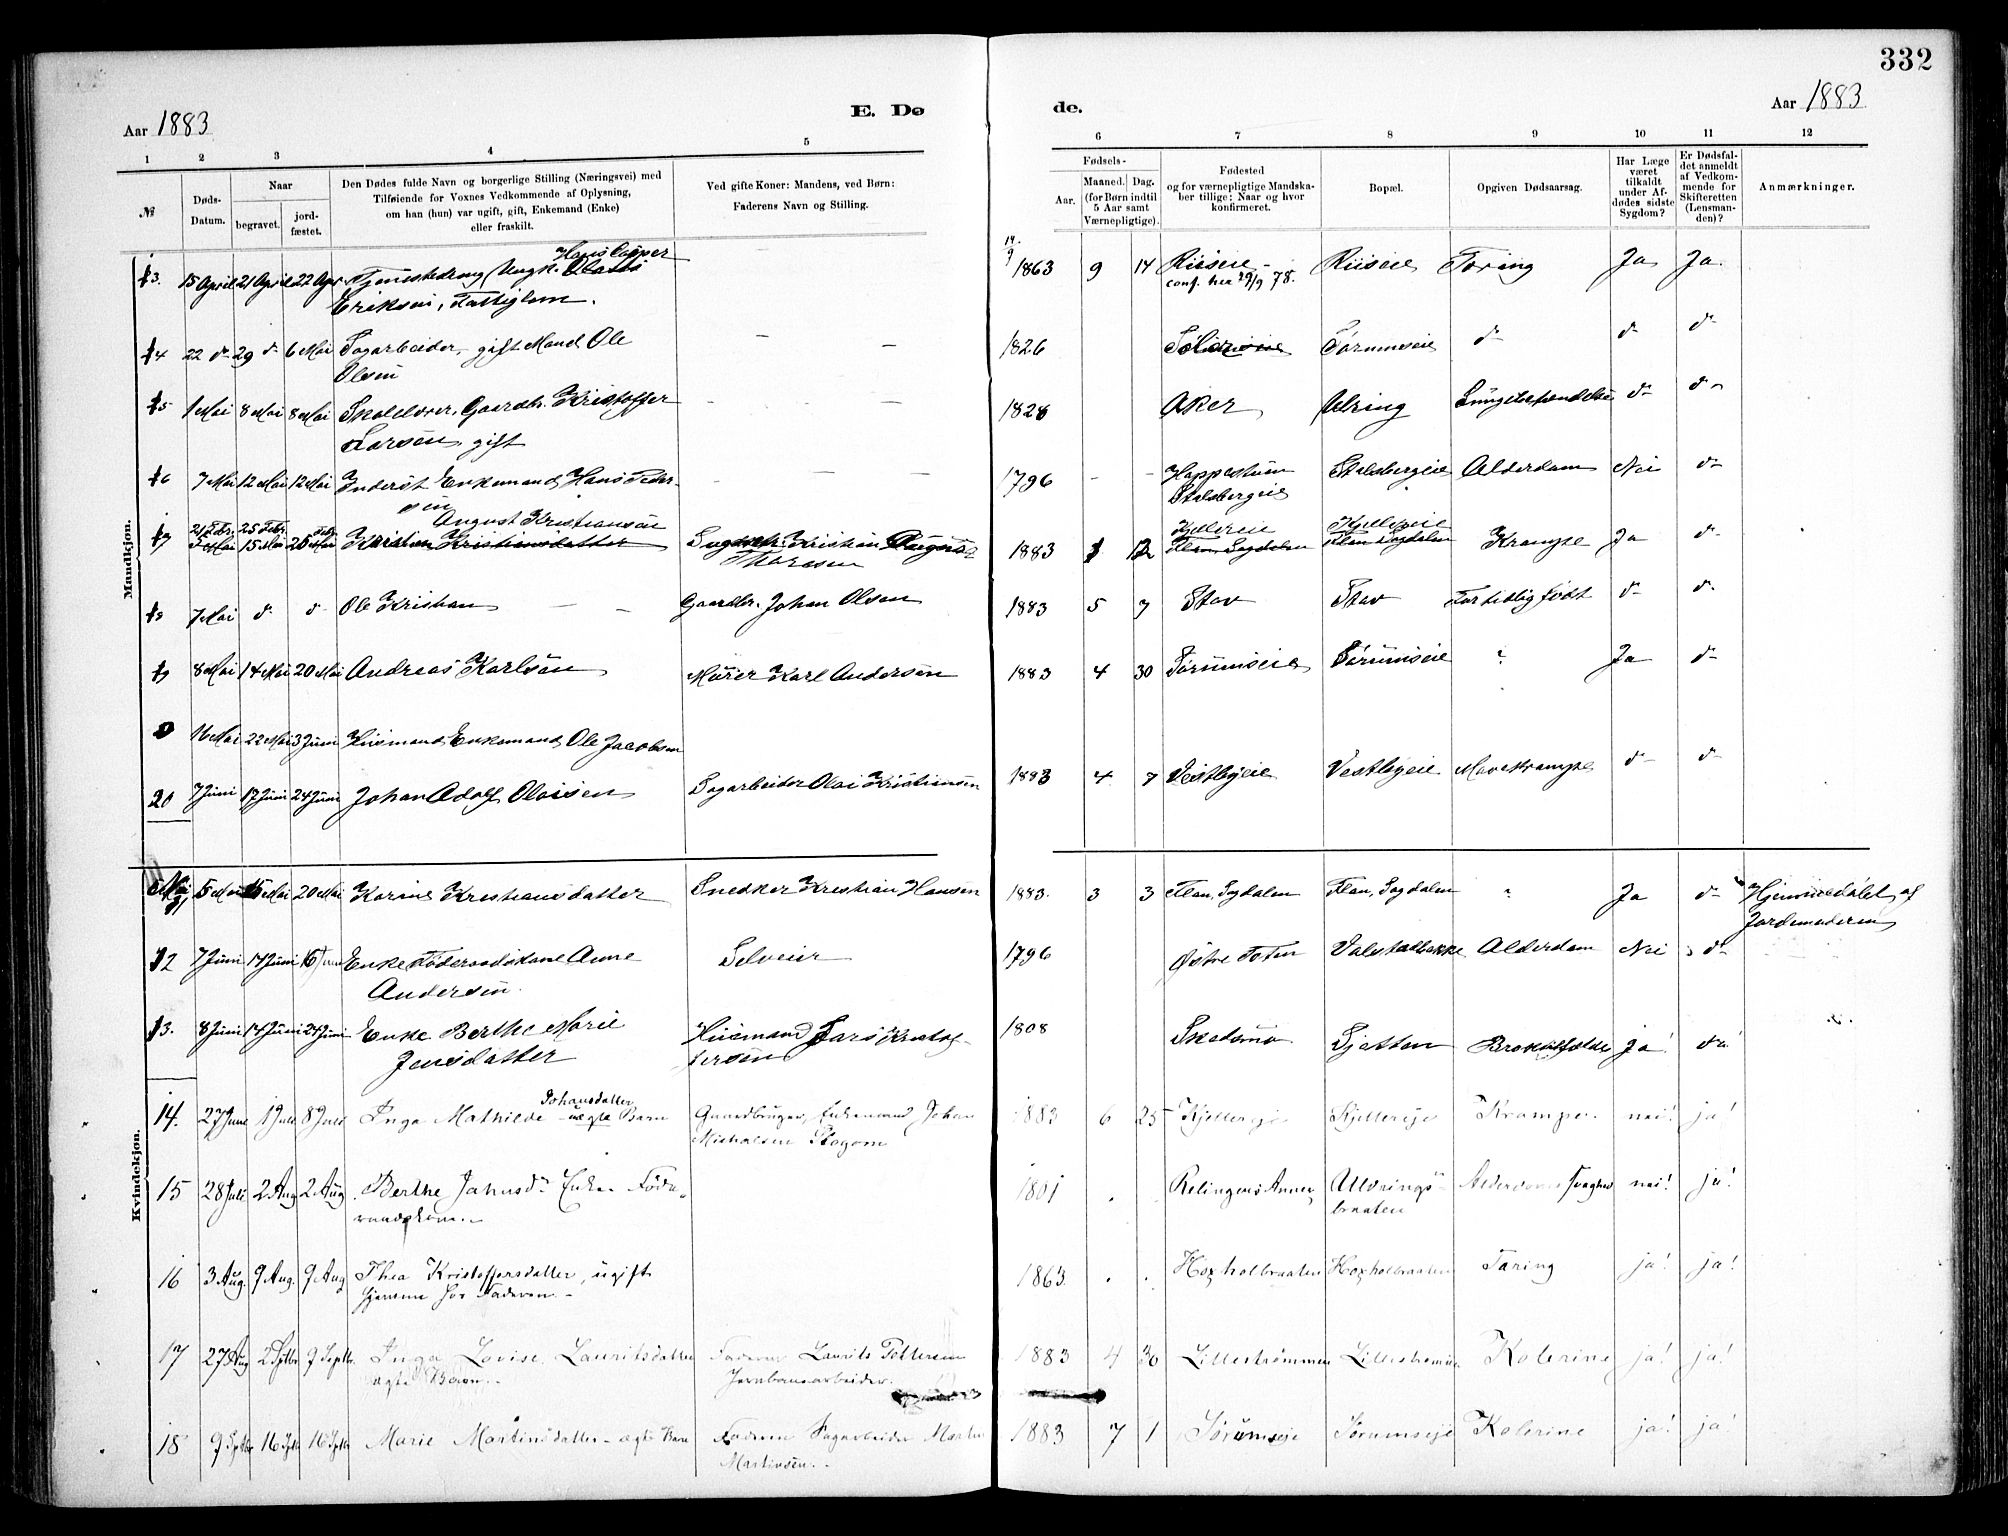 332
Aar 1883
E. Dø
de.
Aar 1883
1 2 3 4 5 6 7 8 9 10 11 12
№
Døds-Datum.
Naar
begravet.
jord-fæstet.
Den Dødes fulde Navn og borgerlige Stilling (Næringsvei) med
Tilføiende for Voxnes Vedkommende af Oplysning,
om han (hun) var ugift, gift, Enkemand (Enke)
eller fraskilt.
Ved gifte Koner: Mandens, ved Børn:
Faderens Navn og Stilling.
Fødsels-
Aar.
Maaned. Dag.
(for Børn indtil
5 Aar samt
Værnepligtige).
Fødested
og for værnepligtige Mandska-
ber tillige: Naar og hvor
konfirmeret.
Bopæl.
Opgiven Dødsaarsag.
Har Læge
været
tilkaldt
under Af-
dødes sidste
Sygdom?
Er Dødsfal-
det anmeldt
af Vedkom-
mende for
Skifteretten
(Lensman-
den)?
Anmærkninger.
Mandkjøn.
13. 15 April 21 April 22 Apr. Tjenestedreng Ungk. 1863 9 14 Riiseie Riiseie Tæring Ja Ja
Eriksen, Fattiglem. conf. her 29/9 78.
14 22 d- 29 d- 6 Mai Sagarbeider, gift Mand Ole - - 1826 Sørumseie d- d- d-
Olsen
15 1 Mai 8 Mai 8 Mai Skolelærer, Gaardbr. Kristoffer - - 1828 Aker Ulring d- d-
Larsen, gift
16 7 Mai 12 Mai 12 Mai Inderst Enkemand Hans Peder- - - 1796 - - Stalsbergeie Alderdom Nei d-
sen Stalsbergeie
August Kristiansen Kjellereie Kjellereie
17 21 Febr. 25 Febr. Karoline Kristiansdatter Kristian August 1883 12 Flan, Sagdalen Flan Sagdalen Krampe Ja d-
5 Mai 15 Mai Thoresen
18 7 Mai d- d- Ole Kristian - - Gaardbr. Johan Olsen 1883 5 7 Stav Stav For tidlig født d- d-
19 8 Mai 14 Mai 20 Mai Andreas Karlsen Murer Karl Andersen 1883 4 30 Sørumseie Sørumseie ? Ja d-
16 Mai 22 Mai 3 Juni Husmand Enkemand Ole Jacobsen
20 7 Juni 17 Juni 24 Juni Johan Adolf Olaisen Sagarbeider Olai Kristiansen 1883 4 7 Vestbyeie Vestbyeie Mavekrampe d- d-
Kvindekjøn.
5 Mai 15 Mai 20 Mai Karine Kristiansdatter Snedker Kristian Hansen 1883. 3 3 Flan, Sagdalen Flan, Sagdalen Ja d- Hjemmedøbt af
Jordemoderen
12 7 Juni 14 Juni Enke Føderaadskone Anne Selveier 1796 Østre Toten Alderdom Nei d-
Andersen.
13. 8 Juni 14 Juni 24 Juni Enke Berthe Marie Husmand Lars Kristof- 1808 Skedsmo Sjetten Ja! d-!
Jensdatter fersen
Johansdatter
14. 27 June 1 Juli 8 Juli Inga Mathilde uægte Barn Gaardbruger, Enkemand Johan 1883 6 25 Kjellereje Kjellereje Krampe nei! ja!
15 28 Juli 2 Aug 2 Aug Berthe Enke Føde- 1801 . . Relingens Annex Alderdoms svaghed nei! ja!
raadskone.- braaten
16 3 Aug. 9 Aug. 9 Aug Thea Kristoffersdatter, ugift 1863 . . Tæring ja! ja!
hjemme hos Faderen.-
17 27 Aug 2 Septbr 9 Septbr. Inga Lovise Lauritsdatter Faderen Laurits Pettersen 1883 4 30 Lillestrømmen Lillestrømmen Kolerine ja! ja!
ægte Barn.- Jernbanearbeider.
18 9 Septbr 16 Septb 16 Septb Marie Martinsdatter - ægte Barn Faderen Sagarbeider Martin 1883 7 1 Sørumseje Sørumseje Kolerine ja! ja!
Martinsen.-